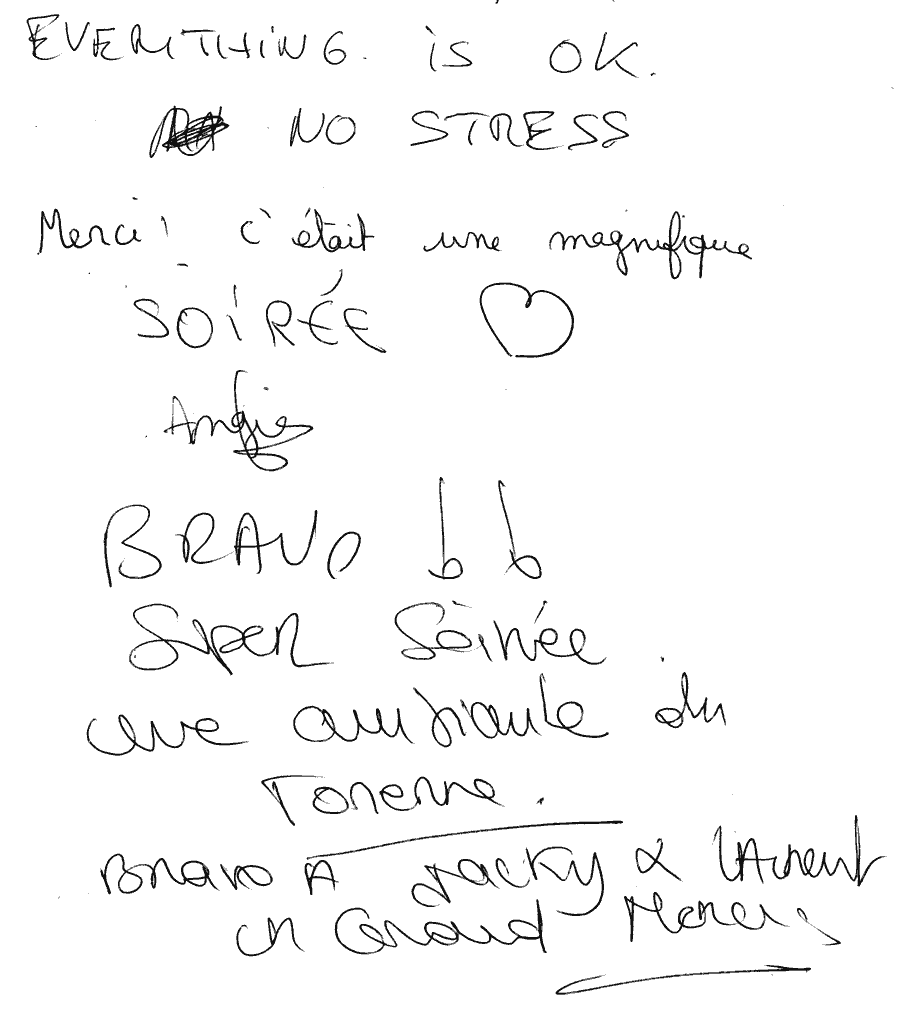 EVERYTHING. is OK.
NO STRESS
Merci! c'était une magnifique
SOIRÉE
Angie
BRAVO !!
Super Soirée
une ambiante du
Tonerre.
Bravo A Jacky & LAurent
un Grand Merci